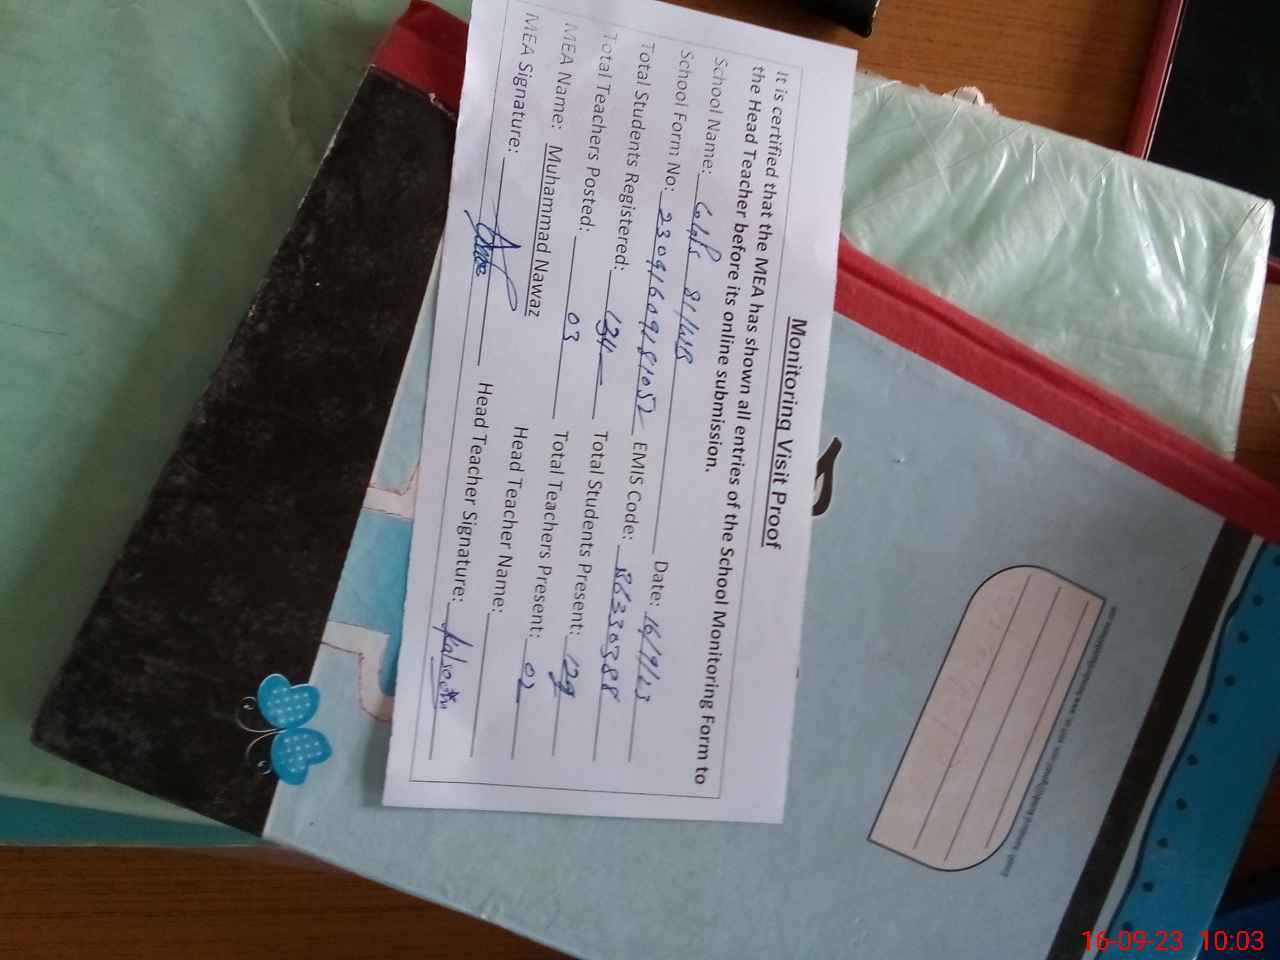 Monitoring Visit Proof
It is certified that the MEA has shown all entries of the School Monitoring Form to
the Head Teacher before its online submission.
School Name: 81/WB Date: 16/9/23
School Form No: 230916091581052 EMIS Code: 36330388
Total Students Registered: 134 Total Students Present: 129
Total Teachers Posted: 03 Total Teachers Present: 02
MEA Name: Muhammad Nawaz Head Teacher Name:
MEA Signature: Head Teacher Signature: Kalsoom
16-09-23 10:03